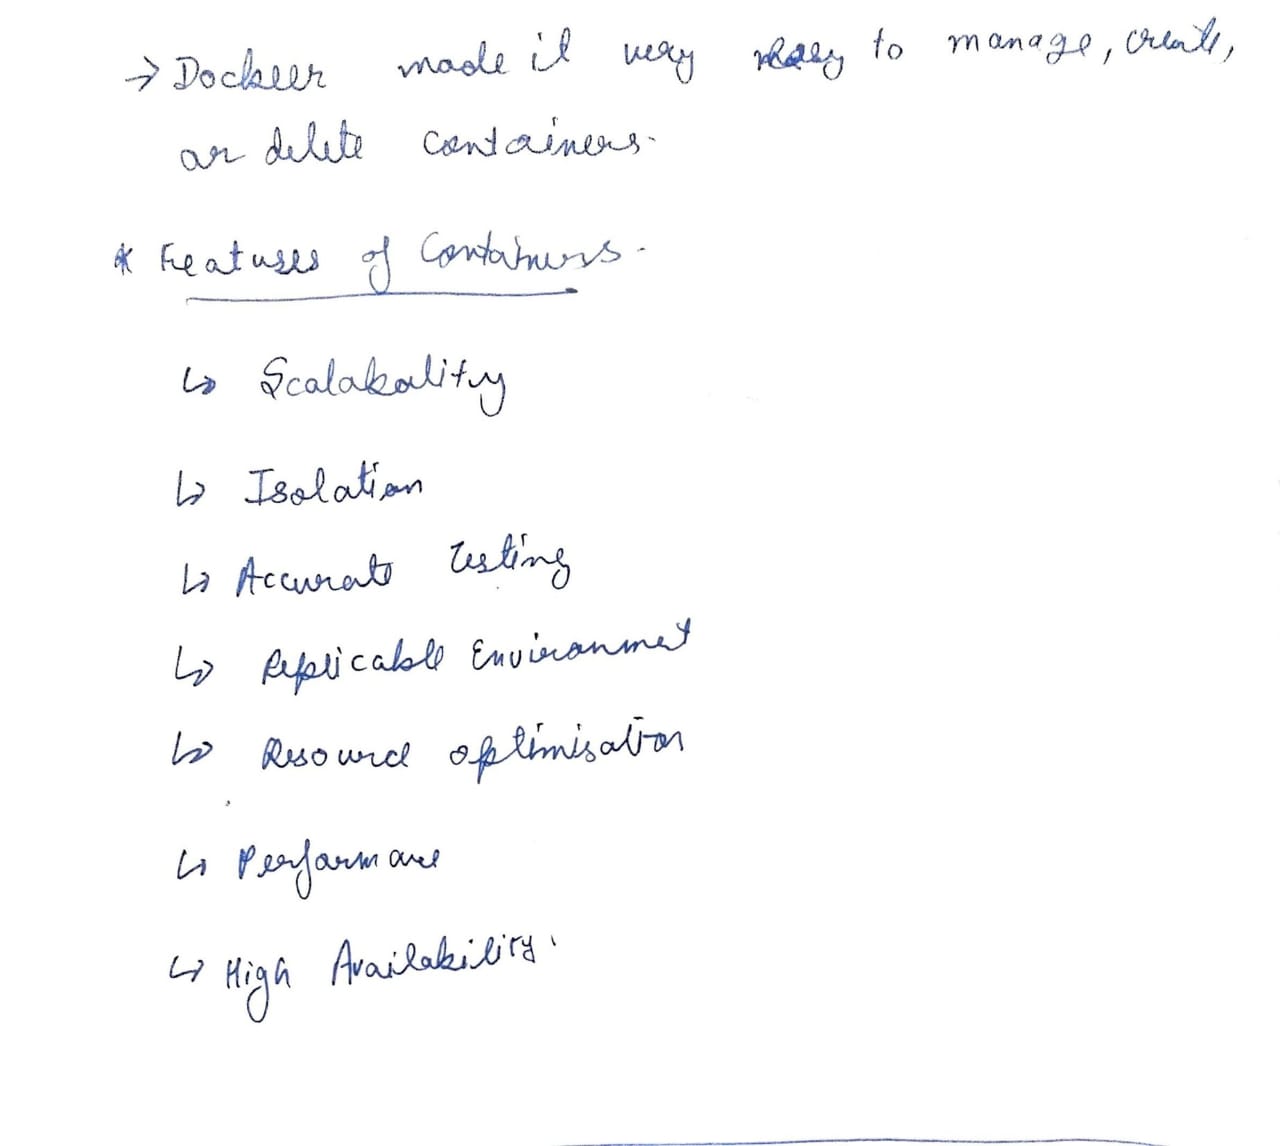 → Dockeer made it very easy to manage, create,
or delete containers.
* Features of Containers.
↳ Scalabality
↳ Isolation
↳ Accurate Testing
↳ Replicable Environmet
↳ Resource optimisation
↳ Performance
↳ High Availability.